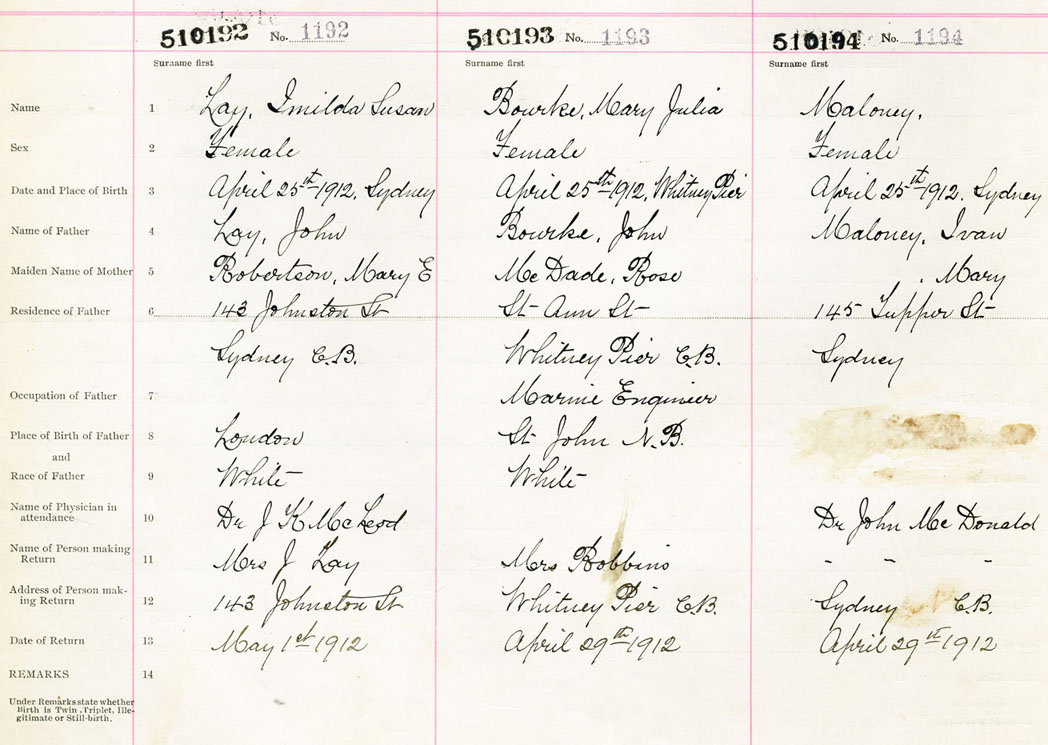 510192 No. 1192
510193 No. 1193
510194 No. 1194
Surname first
Surname first
Surname first
Name 1 Lay, Imilda Susan Bourke, Mary Julia Maloney,
Sex 2 Female Female Female
Date and Place of Birth 3 April 25th 1912, Sydney April 25th 1912, Whitney Pier April 25th 1912, Sydney
Name of Father 4 Lay, John Bourke, John Maloney, Ivan
Maiden Name of Mother 5 Robertson, Mary E McDade, Rose , Mary
Residence of Father 6 143 Johnston St St Ann St 145 Tupper St
Sydney C.B. Whitney Pier C.B. Sydney
Occupation of Father 7 Marine Engineer
Place of Birth of Father 8 London St John N.B.
and
Race of Father 9 White White
Name of Physician in
attendance 10 Dr J K McLeod Dr John McDonald
Name of Person making
Return 11 Mrs J Lay Mrs Robbins - - -
Address of Person mak-
ing Return 12 143 Johnston St Whitney Pier C.B. Sydney C.B.
Date of Return 13 May 1st 1912 April 29th 1912 April 29th 1912
REMARKS 14
Under Remarks state whether
Birth is Twin, Triplet, Ille-
gitimate or Still-birth.